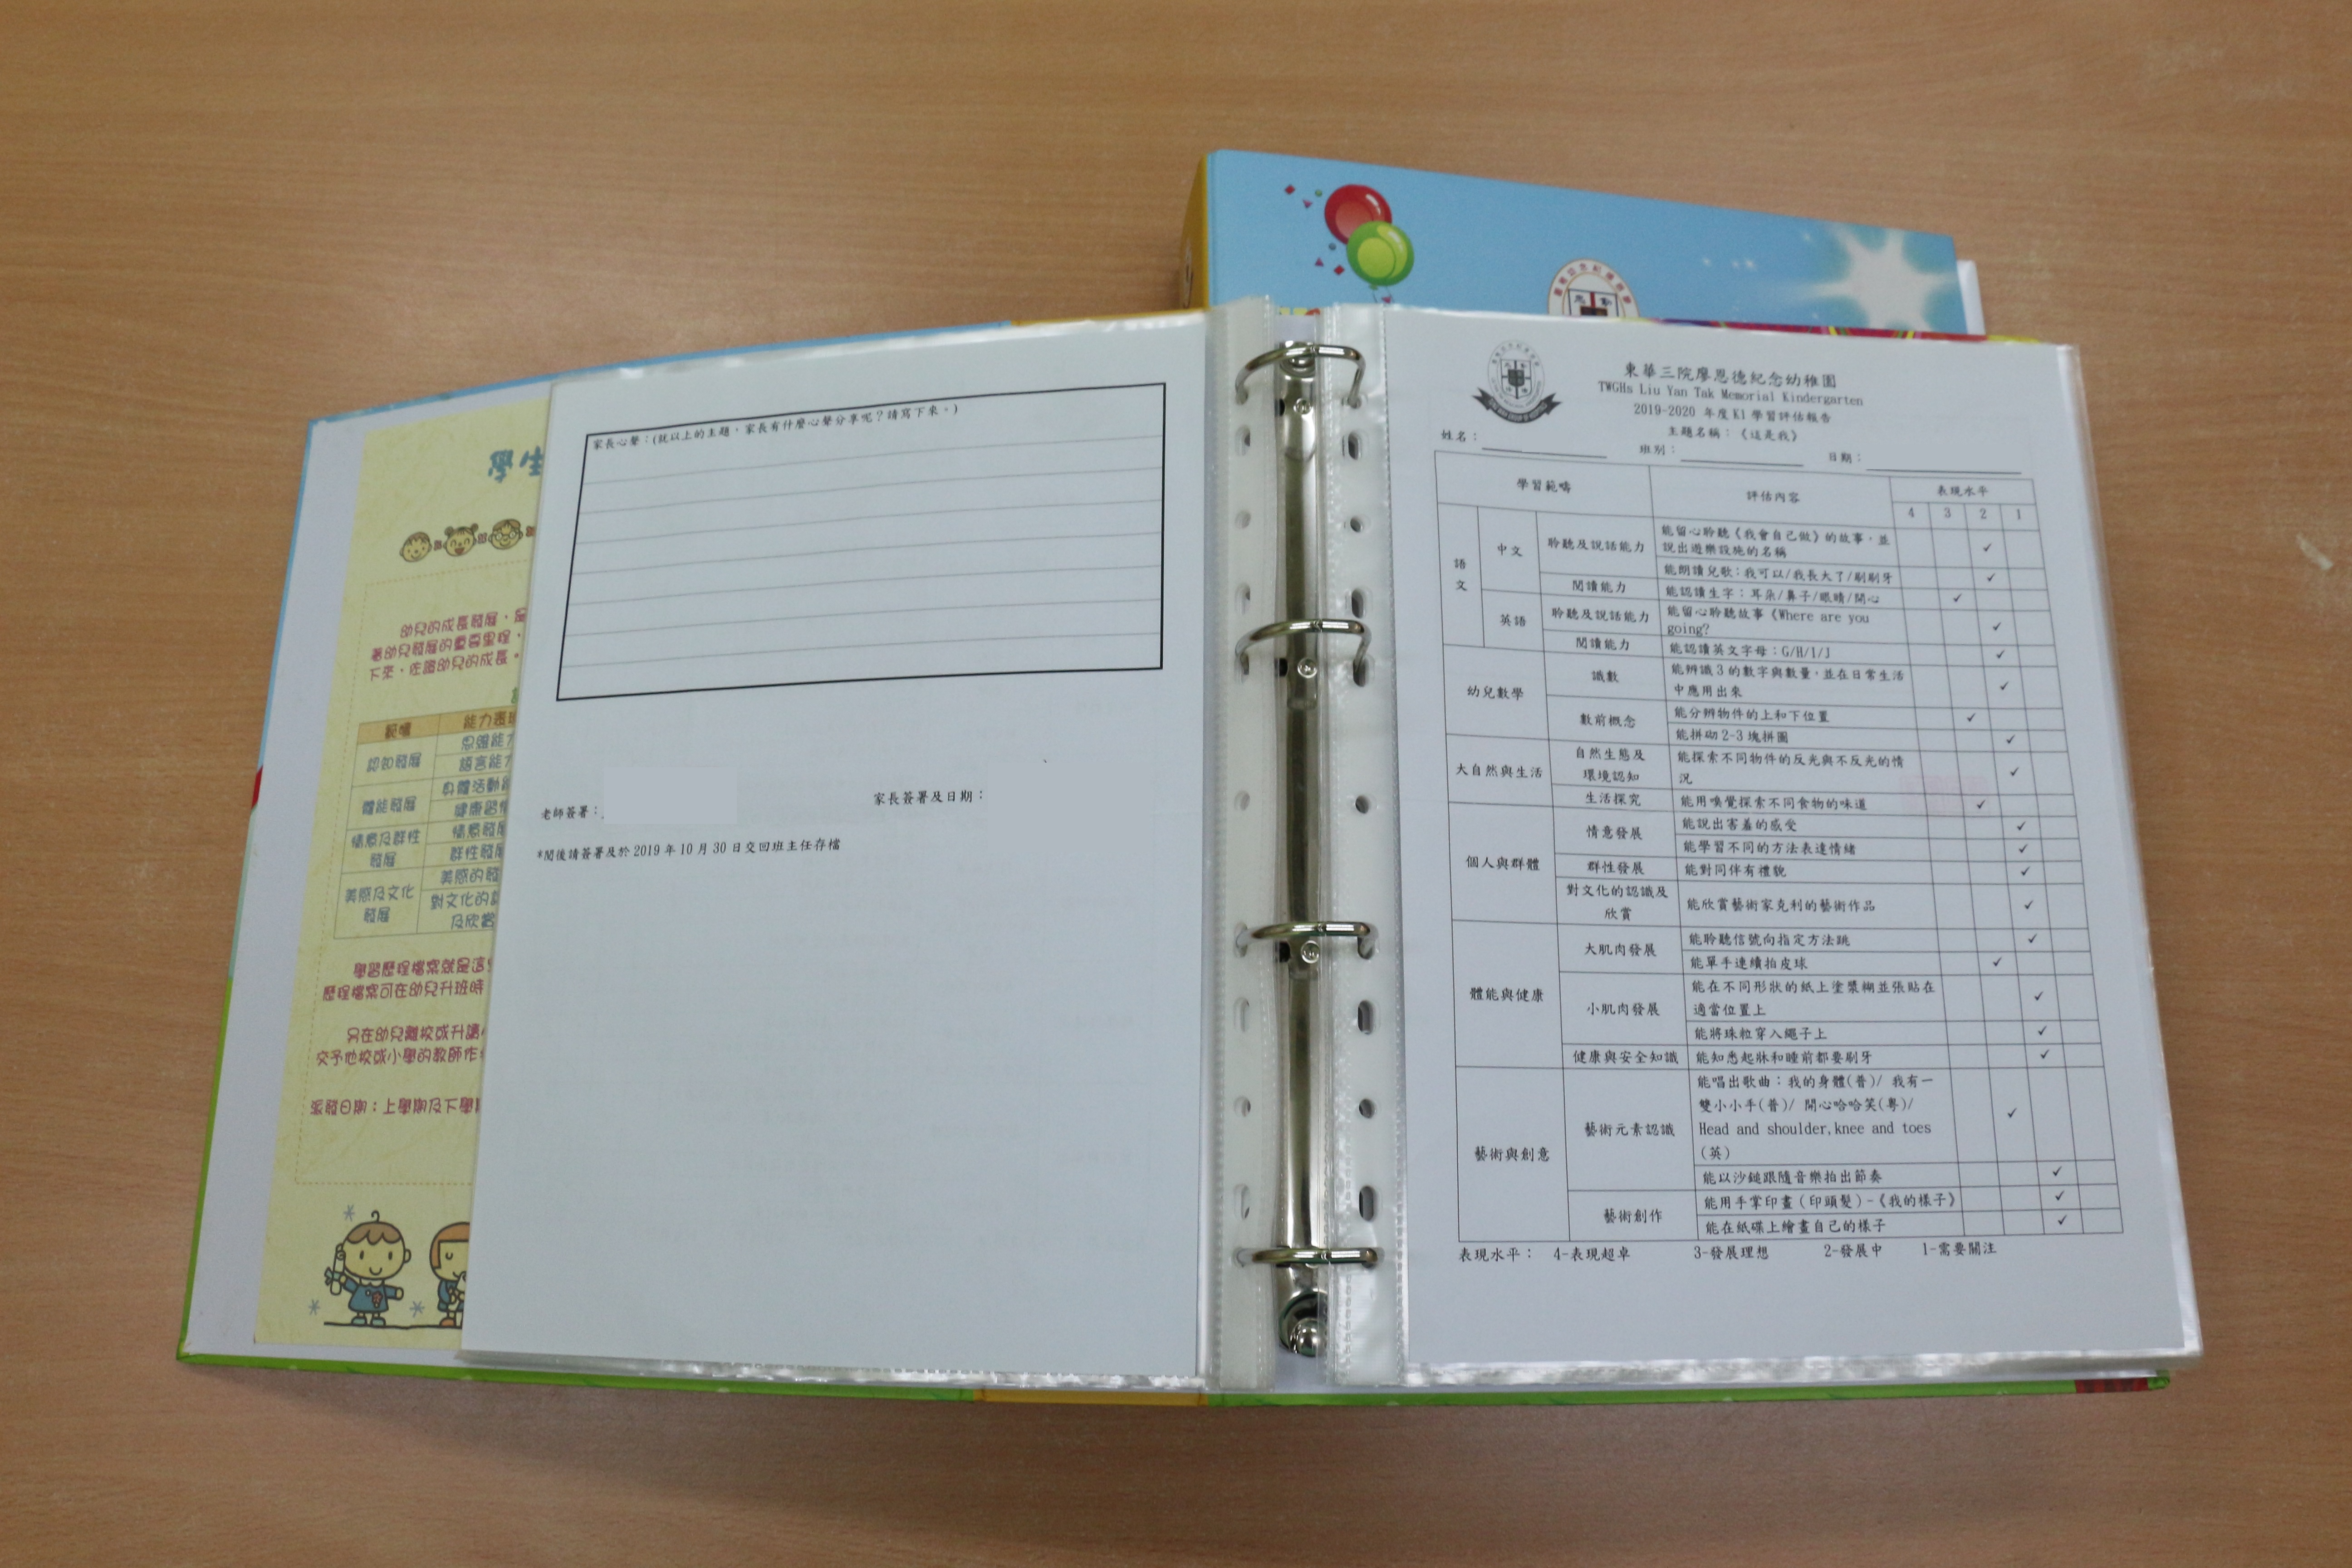 學生
幼兒的成長發展,是
著幼兒發展的重要里程,
下來,佐證幼兒的成長。
範疇
能力表現
認知發展
思維能力
語言能力
體能發展
身體活動能
健康習慣
情意及群性
發展
情意發展
群性發展
美感及文化
發展
美感的發
對文化的認
及欣賞
學習歷程檔案就是這
歷程檔案可在幼兒升班時
另在幼兒離校或升讀
交予他校或小學的教師作
派發日期:上學期及下學期
家長心聲:(就以上的主題,家長有什麼心聲分享呢?請寫下來。)
老師簽署:
家長簽署及日期:
*閱後請簽署及於 2019 年 10 月 30 日交回班主任存檔
東華三院廖恩德紀念幼稚園
TWGHs Liu Yan Tak Memorial Kindergarten
2019-2020 年度 K1 學習評估報告
主題名稱:《這是我》
姓名: 班別: 日期:
學習範疇 評估內容 表現水平
4 3 2 1
語文
中文
聆聽及說話能力
能留心聆聽《我會自己做》的故事,並
說出遊樂設施的名稱 ✓
能朗讀兒歌:我可以/我長大了/刷刷牙 ✓
閱讀能力 能認讀生字:耳朵/鼻子/眼睛/開心 ✓
英語
聆聽及說話能力
能留心聆聽故事《Where are you
going? ✓
閱讀能力 能認讀英文字母:G/H/I/J ✓
幼兒數學
識數
能辨識 3 的數字與數量,並在日常生活
中應用出來 ✓
數前概念
能分辨物件的上和下位置 ✓
能拼砌 2-3 塊拼圖 ✓
大自然與生活
自然生態及
環境認知
能探索不同物件的反光與不反光的情
況 ✓
生活探究 能用嗅覺探索不同食物的味道 ✓
個人與群體
情意發展
能說出害羞的感受 ✓
能學習不同的方法表達情緒 ✓
群性發展 能對同伴有禮貌 ✓
對文化的認識及
欣賞
能欣賞藝術家克利的藝術作品 ✓
體能與健康
大肌肉發展
能聆聽信號向指定方法跳 ✓
能單手連續拍皮球 ✓
小肌肉發展
能在不同形狀的紙上塗漿糊並張貼在
適當位置上 ✓
能將珠粒穿入繩子上 ✓
健康與安全知識 能知悉起牀和睡前都要刷牙 ✓
藝術與創意
藝術元素認識
能唱出歌曲:我的身體(普)/ 我有一
雙小小手(普)/ 開心哈哈笑(粵)/
Head and shoulder,knee and toes
(英) ✓
能以沙鎚跟隨音樂拍出節奏 ✓
藝術創作
能用手掌印畫(印頭髮)-《我的樣子》 ✓
能在紙碟上繪畫自己的樣子 ✓
表現水平: 4-表現超卓 3-發展理想 2-發展中 1-需要關注